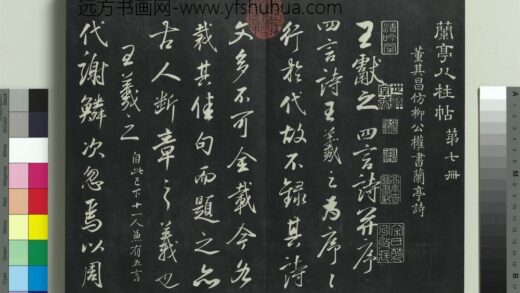 远方书画网-www.yfshuhua.com
蘭亭八柱帖 第七冊
董其昌仿柳公權書蘭亭詩
王獻之四言詩并序
四言詩王羲之為序序
行於代故不錄其詩
文多不可全載今各
裁其佳句而題之亦
古人斷章之義也
王羲之 自此已下十一人兼有五言
代謝鱗次忽焉以周